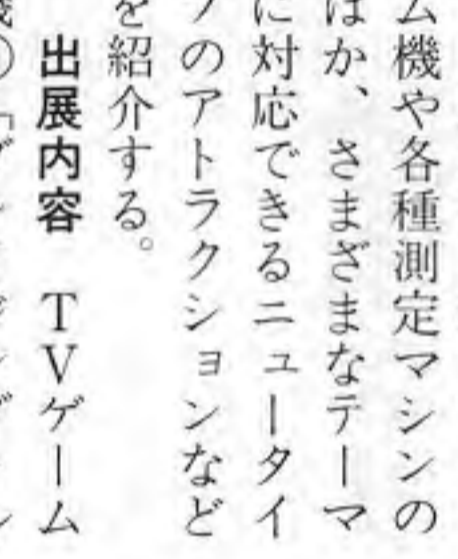 ム機や各種測定マシンの
ほか、さまざまなテーマ
に対応できるニュータイ
プのアトラクションなど
を紹介する。
出展内容　TVゲーム